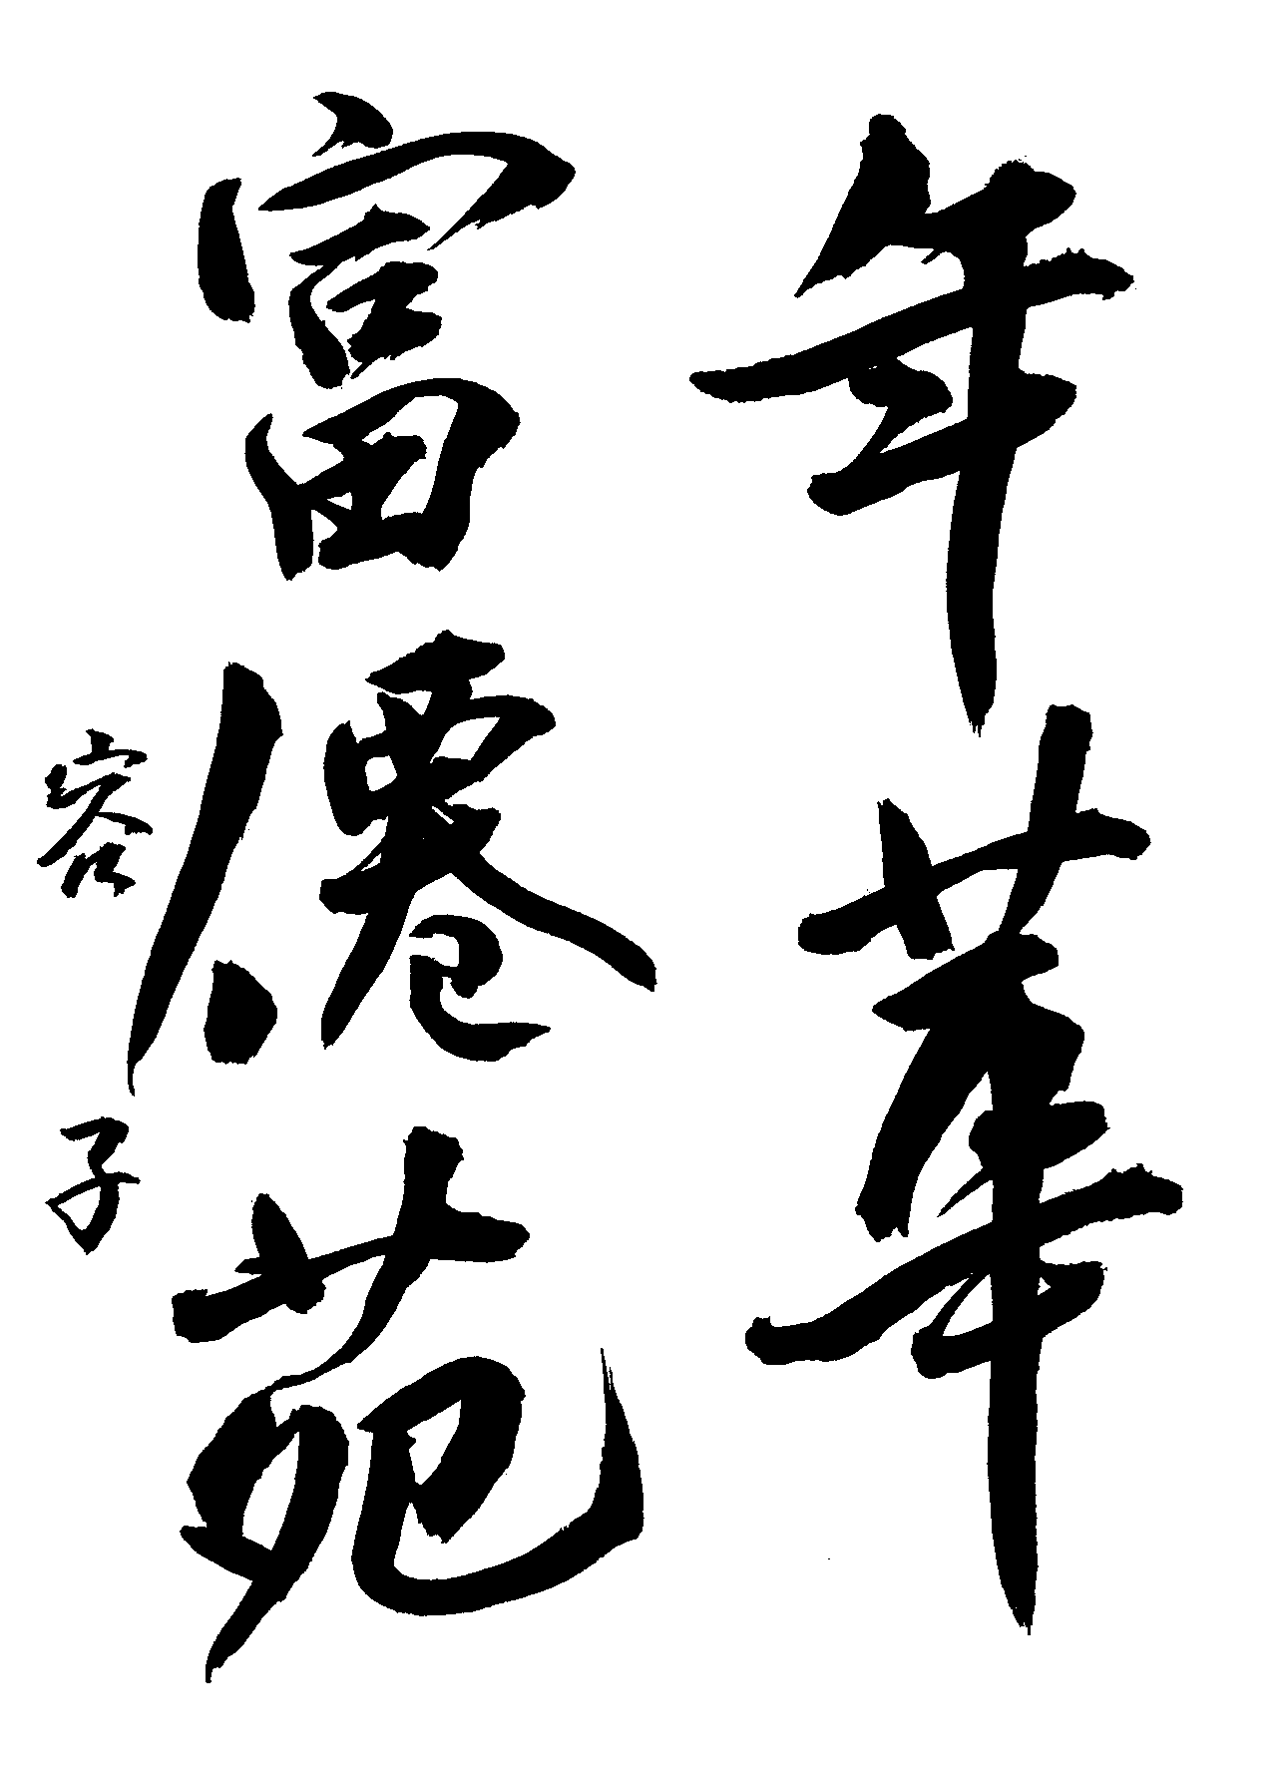 年華
富僊苑
容子